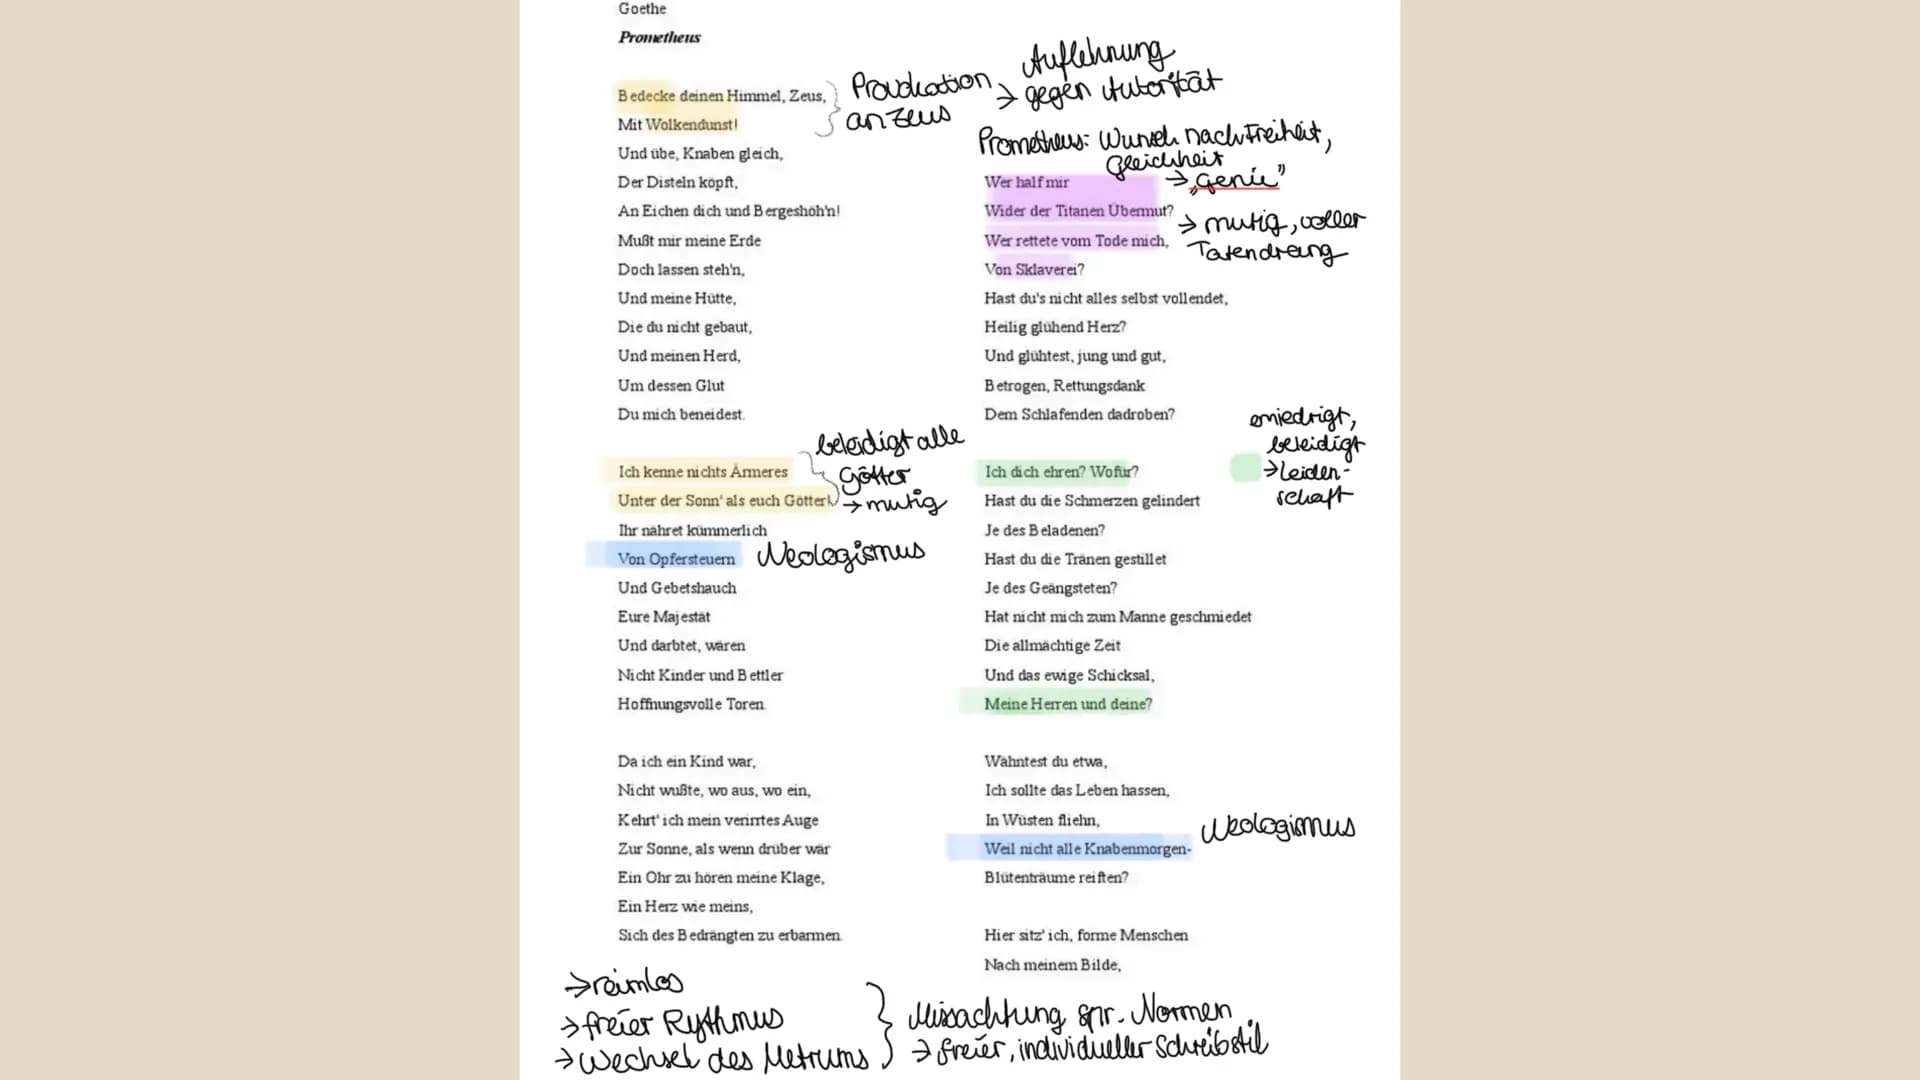 Goethe
Prometheus
Bedecke deinen Himmel, Zeus,
Mit Wolkendunst!
Und übe, Knaben gleich,
Der Disteln köpft,
An Eichen dich und Bergeshöh'n!
Mußt mir meine Erde
Doch lassen steh'n,
Und meine Hütte,
Die du nicht gebaut,
Und meinen Herd,
Um dessen Glut
Du mich beneidest.
Provokation
an Zeus
Auflehnung
→ gegen Autorität
Ich kenne nichts Ärmeres
Unter der Sonn' als euch Götter!
Ihr nähret kümmerlich
Von Opfersteuern
Und Gebetshauch
Eure Majestät
Und darbtet, wären
Nicht Kinder und Bettler
Hoffnungsvolle Toren.
beleidigt alle
Götter
→ mutig
Neologismus
Da ich ein Kind war,
Nicht wußte, wo aus, wo ein,
Kehrt' ich mein verirrtes Auge
Zur Sonne, als wenn drüber wär
Ein Ohr zu hören meine Klage,
Ein Herz wie meins,
Sich des Bedrängten zu erbarmen.
Prometheus: Wunsch nach Freiheit,
Gleichheit
→ „Genie"
Wer half mir
Wider der Titanen Übermut?
Wer rettete vom Tode mich,
Von Sklaverei?
Hast du's nicht alles selbst vollendet,
Heilig glühend Herz?
Und glühtest, jung und gut,
Betrogen, Rettungsdank
Dem Schlafenden dadroben?
→ mutig, voller
Tatendrang
Ich dich ehren? Wofür?
Hast du die Schmerzen gelindert
Je des Beladenen?
Hast du die Tränen gestillet
Je des Geängsteten?
Hat nicht mich zum Manne geschmiedet
Die allmächtige Zeit
Und das ewige Schicksal,
Meine Herren und deine?
erniedrigt,
beleidigt
→ Leiden-
schaft
Wähntest du etwa,
Ich sollte das Leben hassen,
In Wüsten fliehn,
Weil nicht alle Knabenmorgen-
Blütenträume reiften?
Neologismus
Hier sitz' ich, forme Menschen
Nach meinem Bilde,
→ reimlos
→ freier Rythmus
→ Wechsel des Metrums
Missachtung spr. Normen
→ freier, individueller Schreibstil